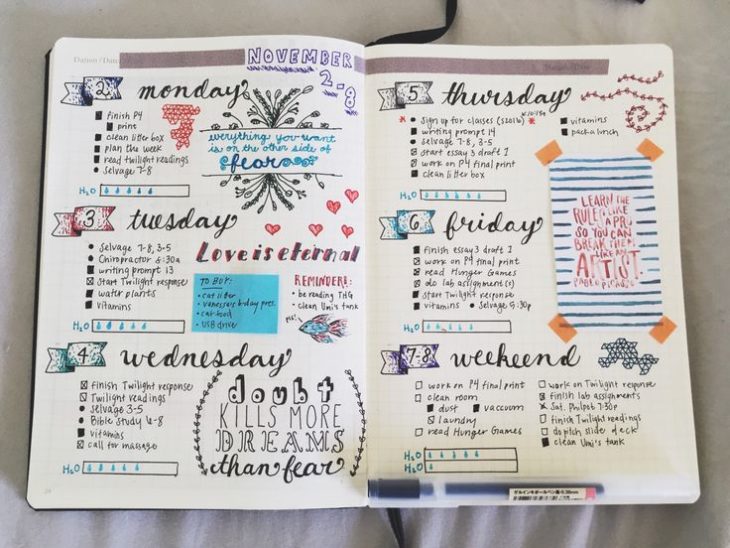 NOVEMBER
2-8
2 monday
finish P4
print
clean litter box
plan the week
read twilight readings
Selvage 7-8
H2O
everything you want
is on the other side of
fear
3 tuesday
Selvage 7-8, 3-5
Chiropractor 6:30a
writing prompt 13
Start Twilight response
water plants
vitamins
H2O
Love is eternal
TO BUY:
cat litter
vanessa's b-day pres.
cat food
USB drive
REMINDER!:
be reading THG
clean Umi's tank
4 wednesday
finish Twilight response
Twilight readings
Selvage 3-5
Bible Study 6-8
vitamins
call for massage
H2O
doubt
KILLS MORE
DREAMS
than fear
5 thursday
Sign up for classes (S2016)
writing prompt 14
Selvage 7-8, 3-5
start essay 3 draft 1
work on P4 final print
clean litter box
vitamins
pack a lunch
H2O
LEARN THE
RULES LIKE
A PRO,
SO YOU CAN
BREAK THEM
LIKE AN
ARTIST.
PABLO PICASSO
6 friday
finish essay 3 draft 1
work on P4 final print
read Hunger Games
do lab assignment(s)
start Twilight response
vitamins
Selvage 5:30p
H2O
7-8 weekend
work on P4 final print
clean room
dust
vaccuum
laundry
read Hunger Games
work on Twilight response
finish lab assignments
Sat. Philpot 7:30p
finish Twilight readings
do pitch slide deck
clean Umi's tank
H2O
H2O